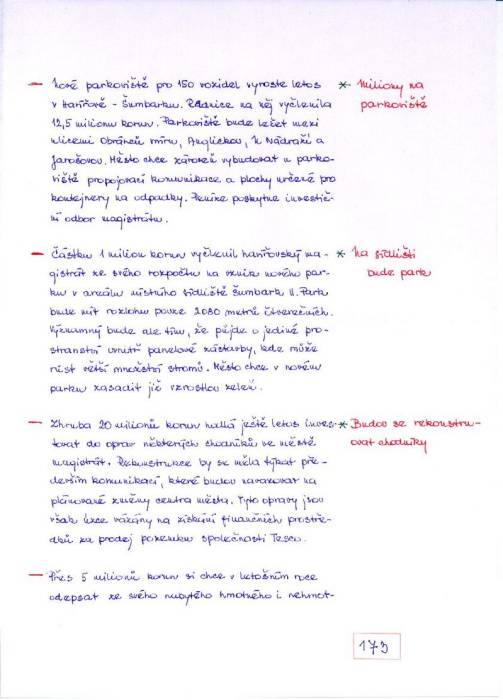 — Nové parkoviště pro 150 vozidel vyroste letos
v Havířově - Šumbarku. Radnice na něj vyčlenila
12,5 milionu korun. Parkoviště bude ležet mezi
ulicemi Obránců míru, Anglickou, U Nádraží a
Jarošovou. Město chce zároveň vybudovat u parko-
viště propojovací komunikace a plochy určené pro
kontejnery na odpadky. Peníze poskytne investič-
ní odbor magistrátu.
* Miliony na
parkoviště
— Částku 1 milion korun vyčlenil havířovský ma-
gistrát ze svého rozpočtu na vznik nového par-
ku v areálu místního sídliště Šumbark II. Park
bude mít rozlohu pouze 2080 metrů čtverečních.
Významný bude ale tím, že půjde o jediné pro-
stranství uvnitř panelové zástavby, kde může
růst větší množství stromů. Město chce v novém
parku zasadit již vzrostlou zeleň.
* Na sídlišti
bude park
— Zhruba 20 milionů korun hodlá ještě letos inves-
tovat do oprav některých chodníků ve městě
magistrát. Rekonstrukce by se měla týkat pře-
devším komunikací, které budou navazovat na
plánované změny centra města. Tyto opravy jsou
však úzce vázány na získání finančních prostře-
dků za prodej pozemku společnosti Tesco.
* Budou se rekonstru-
ovat chodníky
— Přes 5 milionů korun si chce v letošním roce
odepsat ze svého nabytého hmotného i nehmot-
173